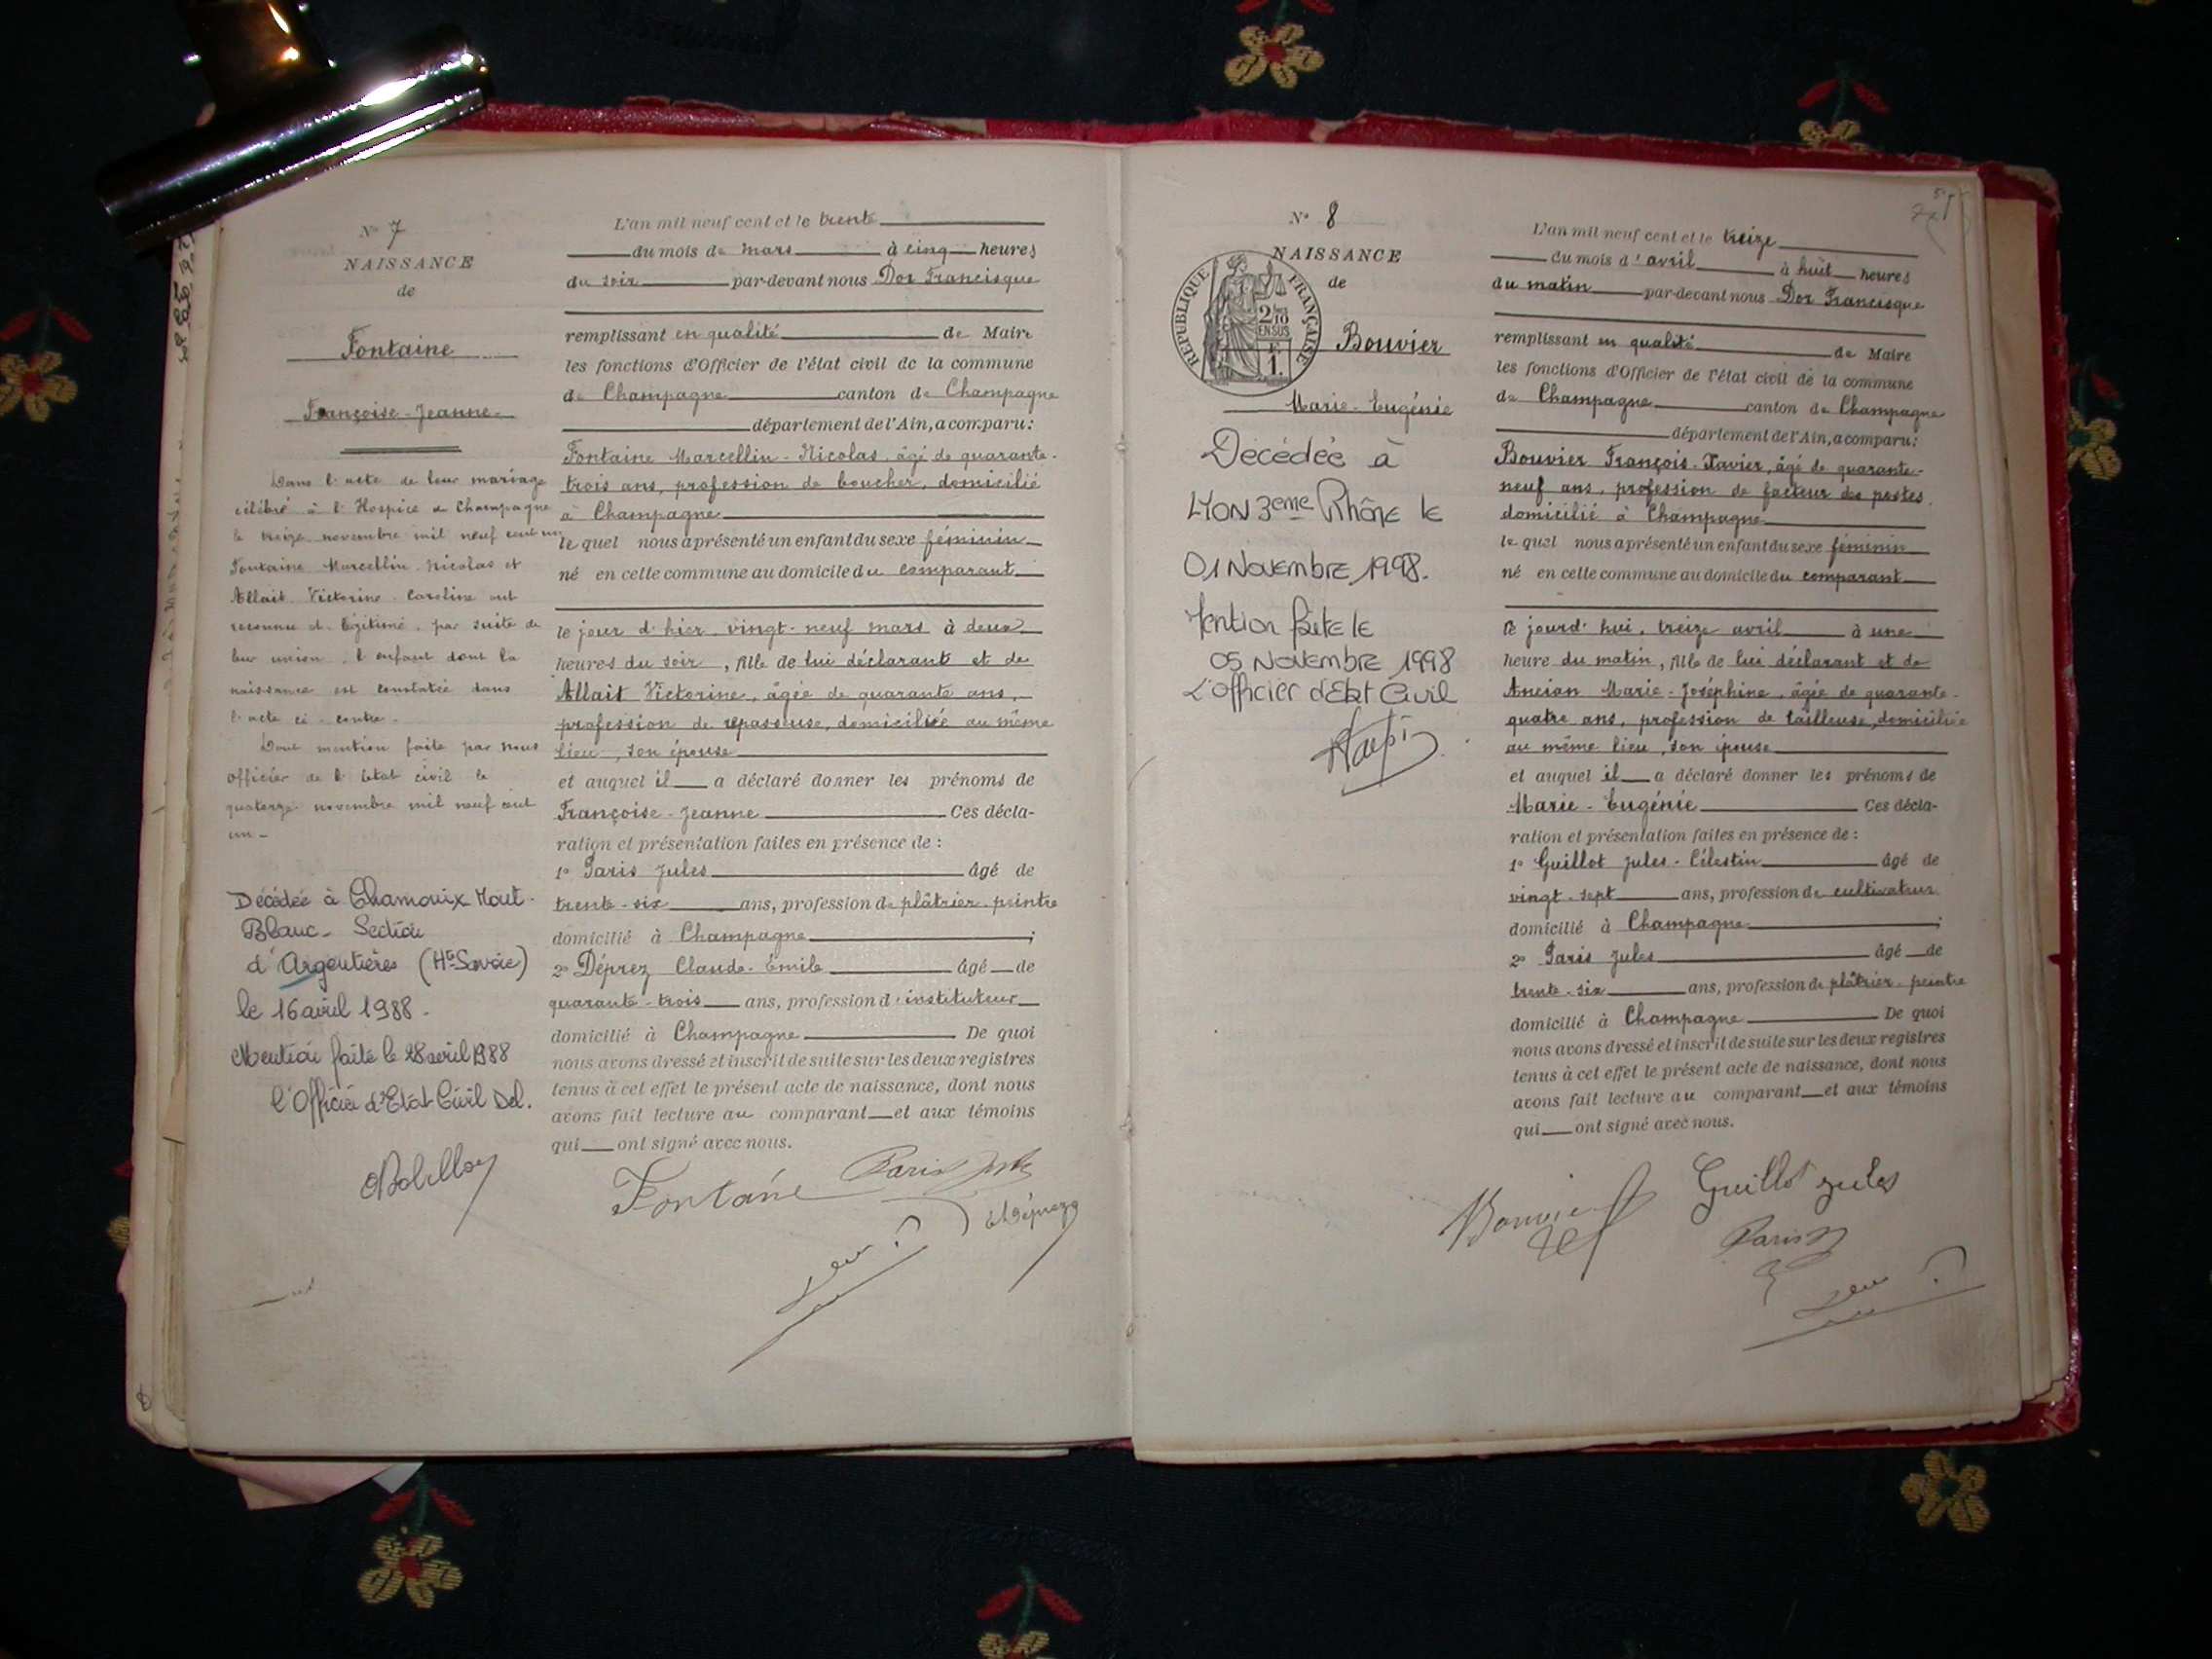 N° 7
NAISSANCE
de
Fontaine
Françoise-Jeanne
Dans l'acte de leur mariage
célébré à l'Hospice de Champagne
le treize novembre mil neuf cent un
Fontaine Marcellin Nicolas et
Allait Victorine Caroline ont
reconnu et légitimé, par suite de
leur union, l'enfant dont la
naissance est constatée dans
l'acte ci-contre.
Dont mention faite par nous
officier de l'état civil le
quatorze novembre mil neuf cent
un -
Décédée à Chamonix Mont-
Blanc - Section
d'Argentières (Hte Savoie)
le 16 avril 1988 -
Mention faite le 28 avril 1988
l'Officier d'Etat Civil Del.
L'an mil neuf cent et le trente
du mois de mars à cinq heures
du soir par-devant nous Dor Francisque
remplissant en qualité de Maire
les fonctions d'Officier de l'état civil de la commune
de Champagne canton de Champagne
département de l'Ain, a comparu:
Fontaine Marcellin-Nicolas, âgé de quarante-
trois ans, profession de boucher, domicilié
à Champagne
le quel nous a présenté un enfant du sexe féminin
né en cette commune au domicile du comparant
le jour d'hier, vingt-neuf mars à deux
heures du soir, fille de lui déclarant et de
Allait Victorine, âgée de quarante ans,
profession de repasseuse, domiciliée au même
lieu, son épouse
et auquel il a déclaré donner les prénoms de
Françoise-Jeanne Ces décla-
ration et présentation faites en présence de :
1° Paris Jules âgé de
trente-six ans, profession de plâtrier-peintre
domicilié à Champagne ;
2° Déprez Claude-Émile âgé de
quarante-trois ans, profession d'instituteur
domicilié à Champagne De quoi
nous avons dressé et inscrit de suite sur les deux registres
tenus à cet effet le présent acte de naissance, dont nous
avons fait lecture au comparant et aux témoins
qui ont signé avec nous.
Fontaine
Paris Jules
Déprez
N° 8
NAISSANCE
de
RÉPUBLIQUE FRANÇAISE
2/10
EN SUS
F.
1.
Bouvier
Marie-Eugénie
Décédée à
LYON 3eme Rhône le
01 Novembre 1998.
Mention faite le
05 Novembre 1998
L'officier d'Etat Civil
L'an mil neuf cent et le treize
du mois d'avril à huit heures
du matin par-devant nous Dor Francisque
remplissant en qualité de Maire
les fonctions d'Officier de l'état civil de la commune
de Champagne canton de Champagne
département de l'Ain, a comparu:
Bouvier François-Xavier, âgé de quarante-
neuf ans, profession de facteur des postes,
domicilié à Champagne
le quel nous a présenté un enfant du sexe féminin
né en cette commune au domicile du comparant
ce jourd'hui, treize avril à une
heure du matin, fille de lui déclarant et de
Ancian Marie-Joséphine, âgée de quarante-
quatre ans, profession de tailleuse, domiciliée
au même lieu, son épouse
et auquel il a déclaré donner les prénoms de
Marie-Eugénie Ces décla-
ration et présentation faites en présence de :
1° Guillot Jules-Célestin âgé de
vingt-sept ans, profession de cultivateur
domicilié à Champagne ;
2° Paris Jules âgé de
trente-six ans, profession de plâtrier-peintre
domicilié à Champagne De quoi
nous avons dressé et inscrit de suite sur les deux registres
tenus à cet effet le présent acte de naissance, dont nous
avons fait lecture au comparant et aux témoins
qui ont signé avec nous.
Bouvier
Guillot Jules
Paris